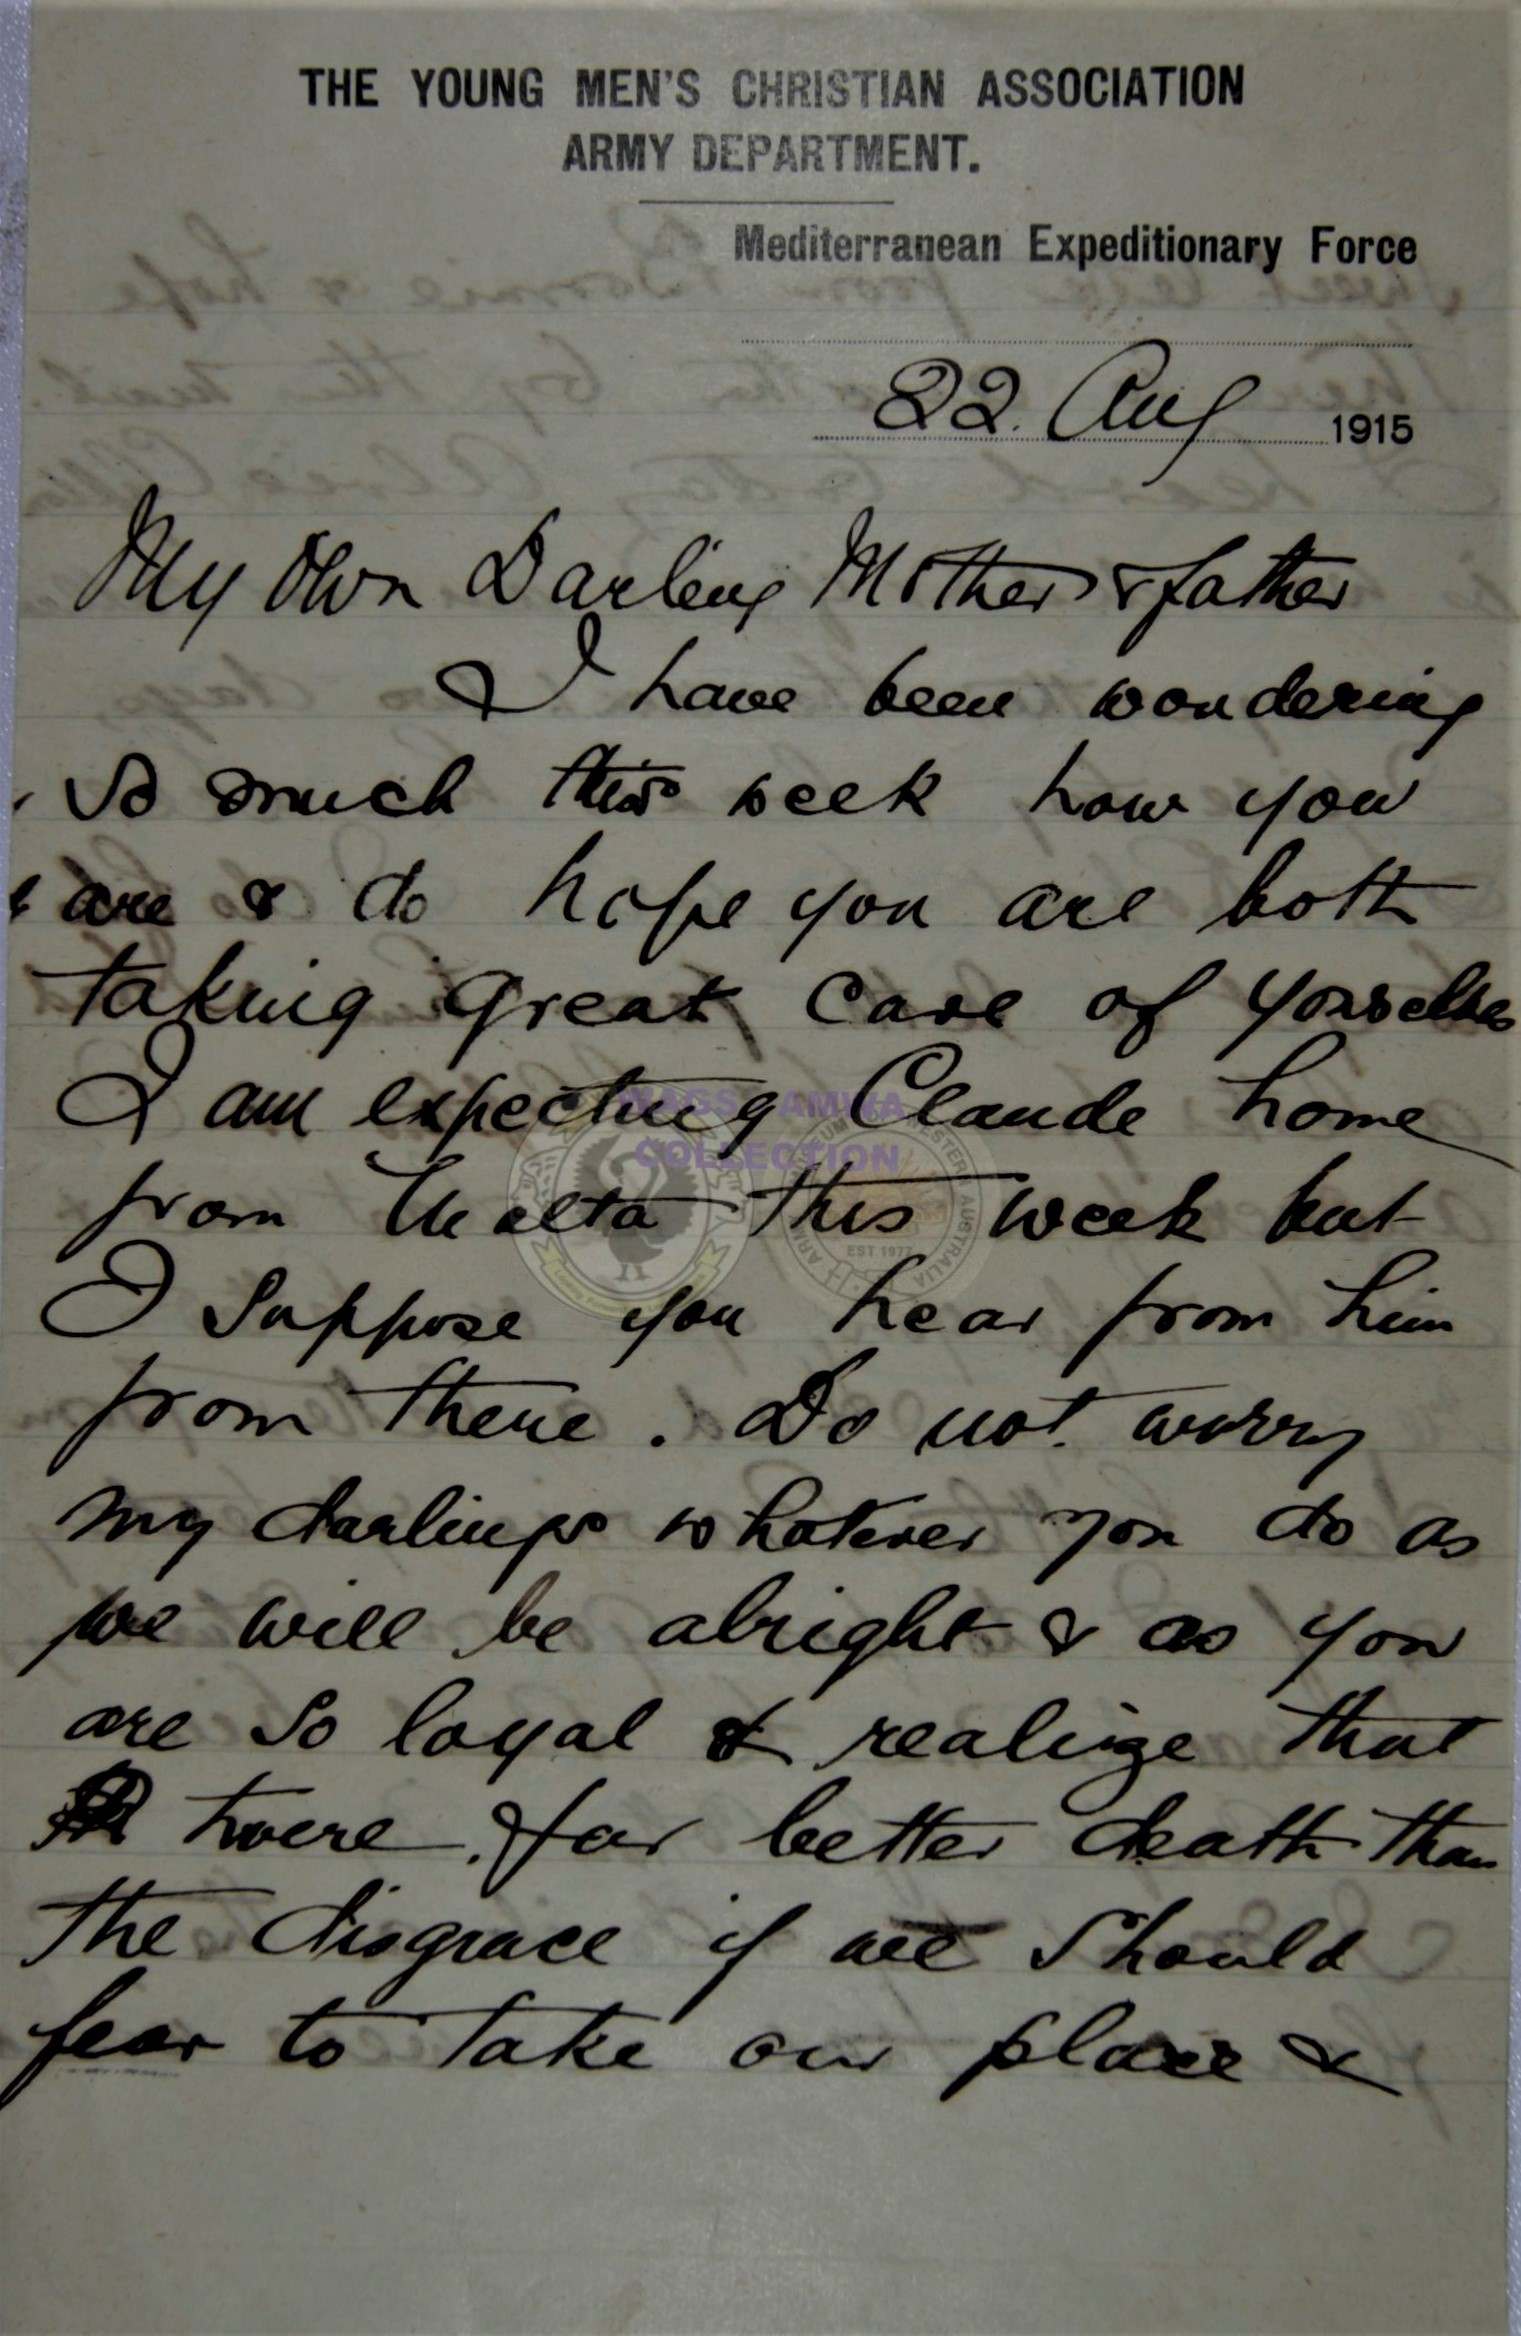 THE YOUNG MEN'S CHRISTIAN ASSOCIATION
ARMY DEPARTMENT.
Mediterranean Expeditionary Force
22. Aug 1915
My Own Darling Mother & father
I have been wondering
so much this week how you
are & do hope you are both
taking great care of yourselves
I am expecting Claude home
from Malta this week but
I suppose you hear from him
from there. Do not worry
my darlings whatever you do as
we will be alright & as you
are so loyal & realize that
twere far better death than
the disgrace if we should
fear to take our place &
WAGS AMWA
COLLECTION
EST 1977